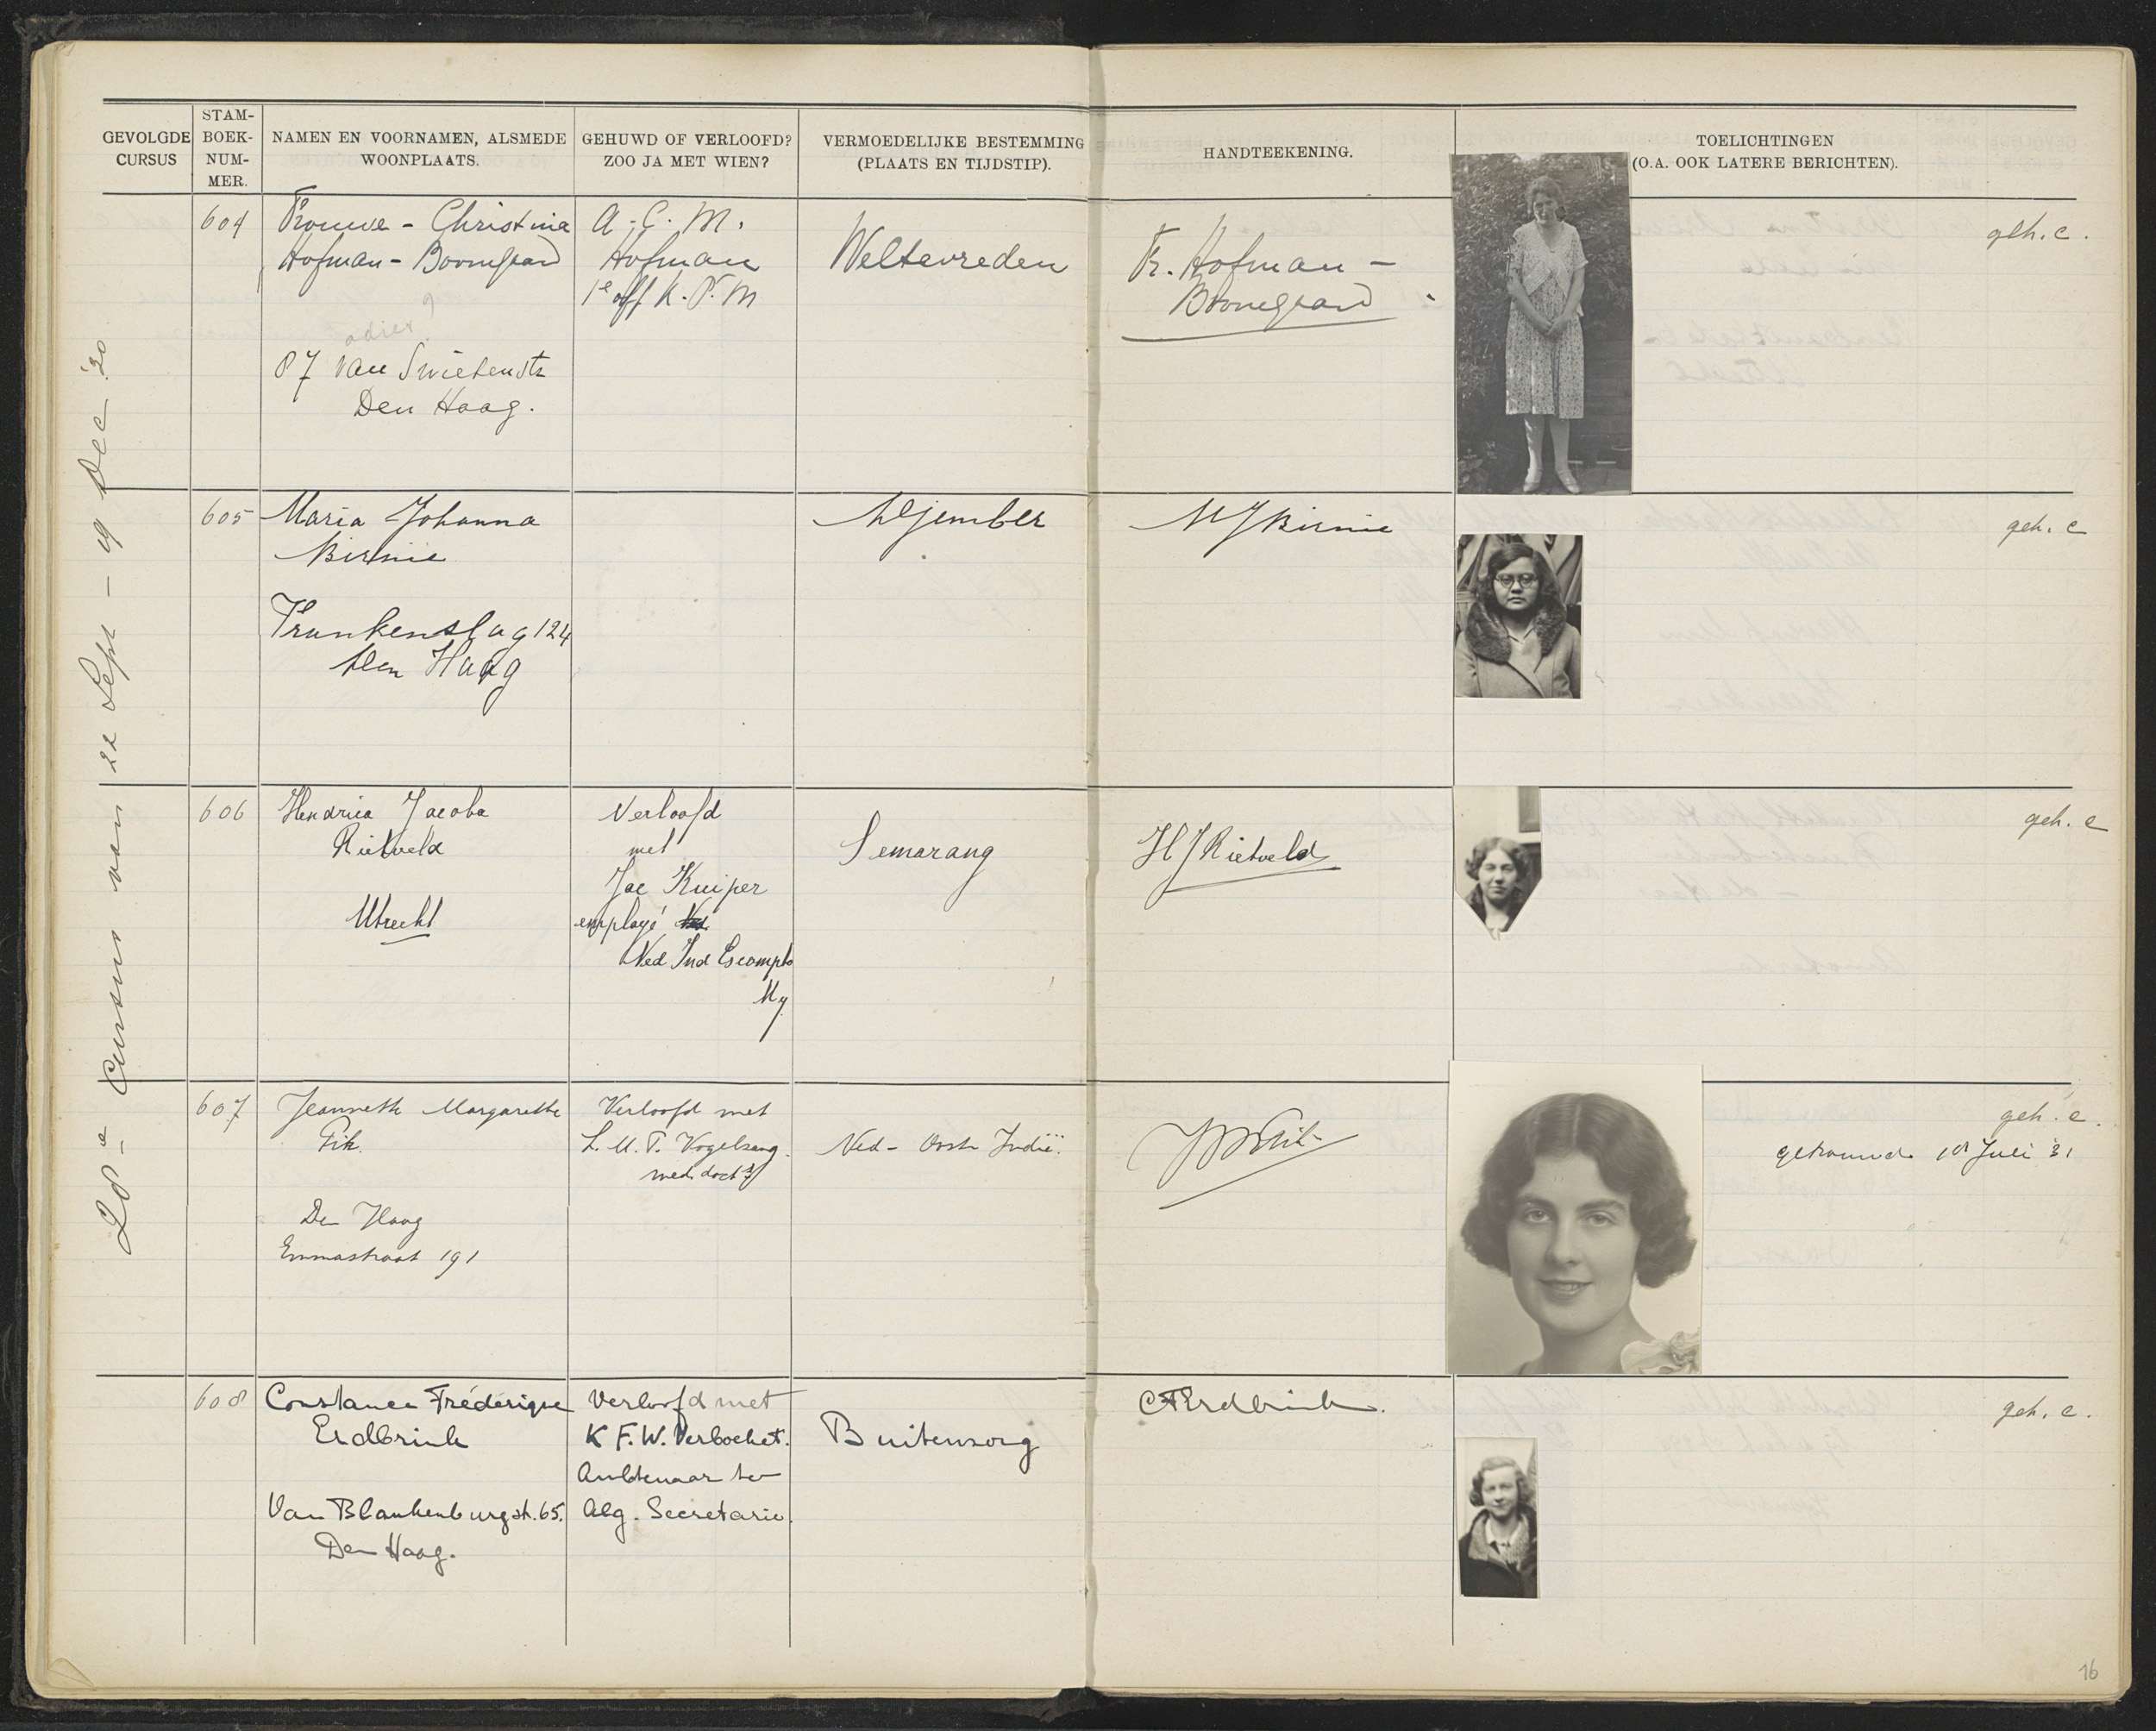 GEVOLGDE
CURSUS
STAM-
BOEK-
NUM-
MER.
NAMEN EN VOORNAMEN, ALSMEDE
WOONPLAATS.
GEHUWD OF VERLOOFD?
ZOO JA MET WIEN?
VERMOEDELIJKE BESTEMMING
(PLAATS EN TIJDSTIP).
HANDTEEKENING.
TOELICHTINGEN
(O.A. OOK LATERE BERICHTEN).
20e Cursus van 22 Sept - 19 Dec '30
604
Christina
Hofman - Boomgaard
87 van Swietenstr
Den Haag.
A. C. M.
Hofman
1e off K. P. M
Weltevreden
Fr. Hofman -
Boomgaard
geh. c.
605
Maria Johanna
Birnie
Frankenslag 124
Den Haag
Djember
M J Birnie
geh. c
606
Hendrica Jacoba
Rietveld
Utrecht
Verloofd
met
Jac Kuiper
employé
Ned Ind Escompto
My
Semarang
H J Rietveld
geh. c
607
Jeannette Margarethe
Pik
Den Haag
Emmastraat 191
Verloofd met
L. U. T. Vogelsang.
med. docts
Ned- Oost- Indië.
geh. c.
getrouwd Juli '31
608
Constance Fréderique
Erdbrink
Van Blankenburgstr. 65.
Den Haag.
Verloofd met
K F. W. Verboeket.
Ambtenaar ter
Alg. Secretarie.
Buitenzorg
CFErdbrink.
geh. c.
16